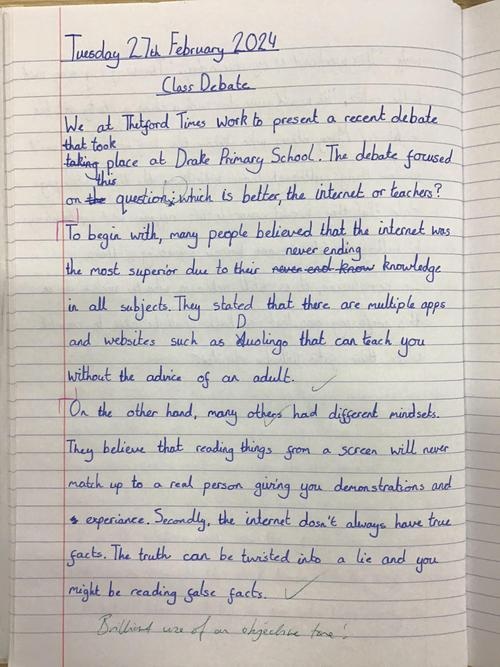 Tuesday 27th February 2024
Class Debate
We at Thetford Times work to present a recent debate
that took
taking place at Drake Primary School. The debate focused
this
on the question; which is better, the internet or teachers?
To begin with, many people believed that the internet was
never ending
the most superior due to their never end know knowledge
in all subjects. They stated that there are multiple apps
D
and websites such as duolingo that can teach you
without the advice of an adult.
On the other hand, many others had different mindsets.
They believe that reading things from a screen will never
match up to a real person giving you demonstrations and
experiance. Secondly, the internet dosn't always have true
facts. The truth can be twisted into a lie and you
might be reading false facts.
Brilliant use of an objective tone!